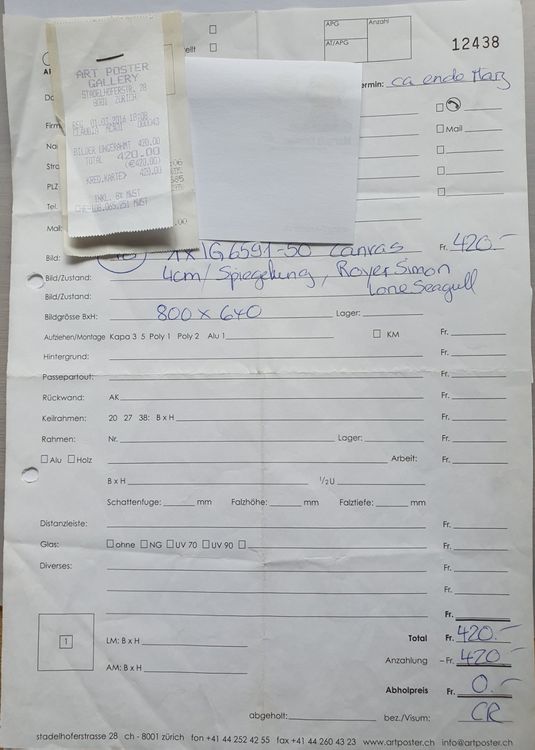 APG
Anzahl
AT/APG
12438
ellt
Termin: ca ende März
ART POSTER
GALLERY
STADELHOFERSTR. 28
8001 ZÜRICH
TOTAL 420.00
(€420.00)
KREDITKARTE 420.00
INKL. 8% MWST
Firm
Na
Stra
PLZ
Tel.
Mail
Mail
Bild: 1x IG6591-50 Canvas Fr. 420.-
Bild/Zustand: 4cm/ Spiegelung, Royer Simon
Bild/Zustand: Lone Seagull
Bildgrösse BxH: 800 x 640 Lager:
Aufziehen/Montage Kapa 3 5 Poly 1 Poly 2 Alu 1 KM Fr.
Hintergrund: Fr.
Passepartout: Fr.
Rückwand: AK Fr.
Keilrahmen: 20 27 38: B x H Fr.
Rahmen: Nr. Lager: Fr.
Alu Holz Arbeit: Fr.
B x H 1/2 U
Schattenfuge: mm Falzhöhe: mm Falztiefe: mm
Distanzleiste: Fr.
Glas: ohne NG UV 70 UV 90 Fr.
Diverses: Fr.
Fr.
Fr.
1
LM: B x H Total Fr. 420.-
Anzahlung – Fr. 420.-
AM: B x H
Abholpreis Fr. 0.-
abgeholt: bez./Visum: CR
stadelhoferstrasse 28 ch - 8001 zürich fon +41 44 252 42 55 fax +41 44 260 43 23 www.artposter.ch info@artposter.ch